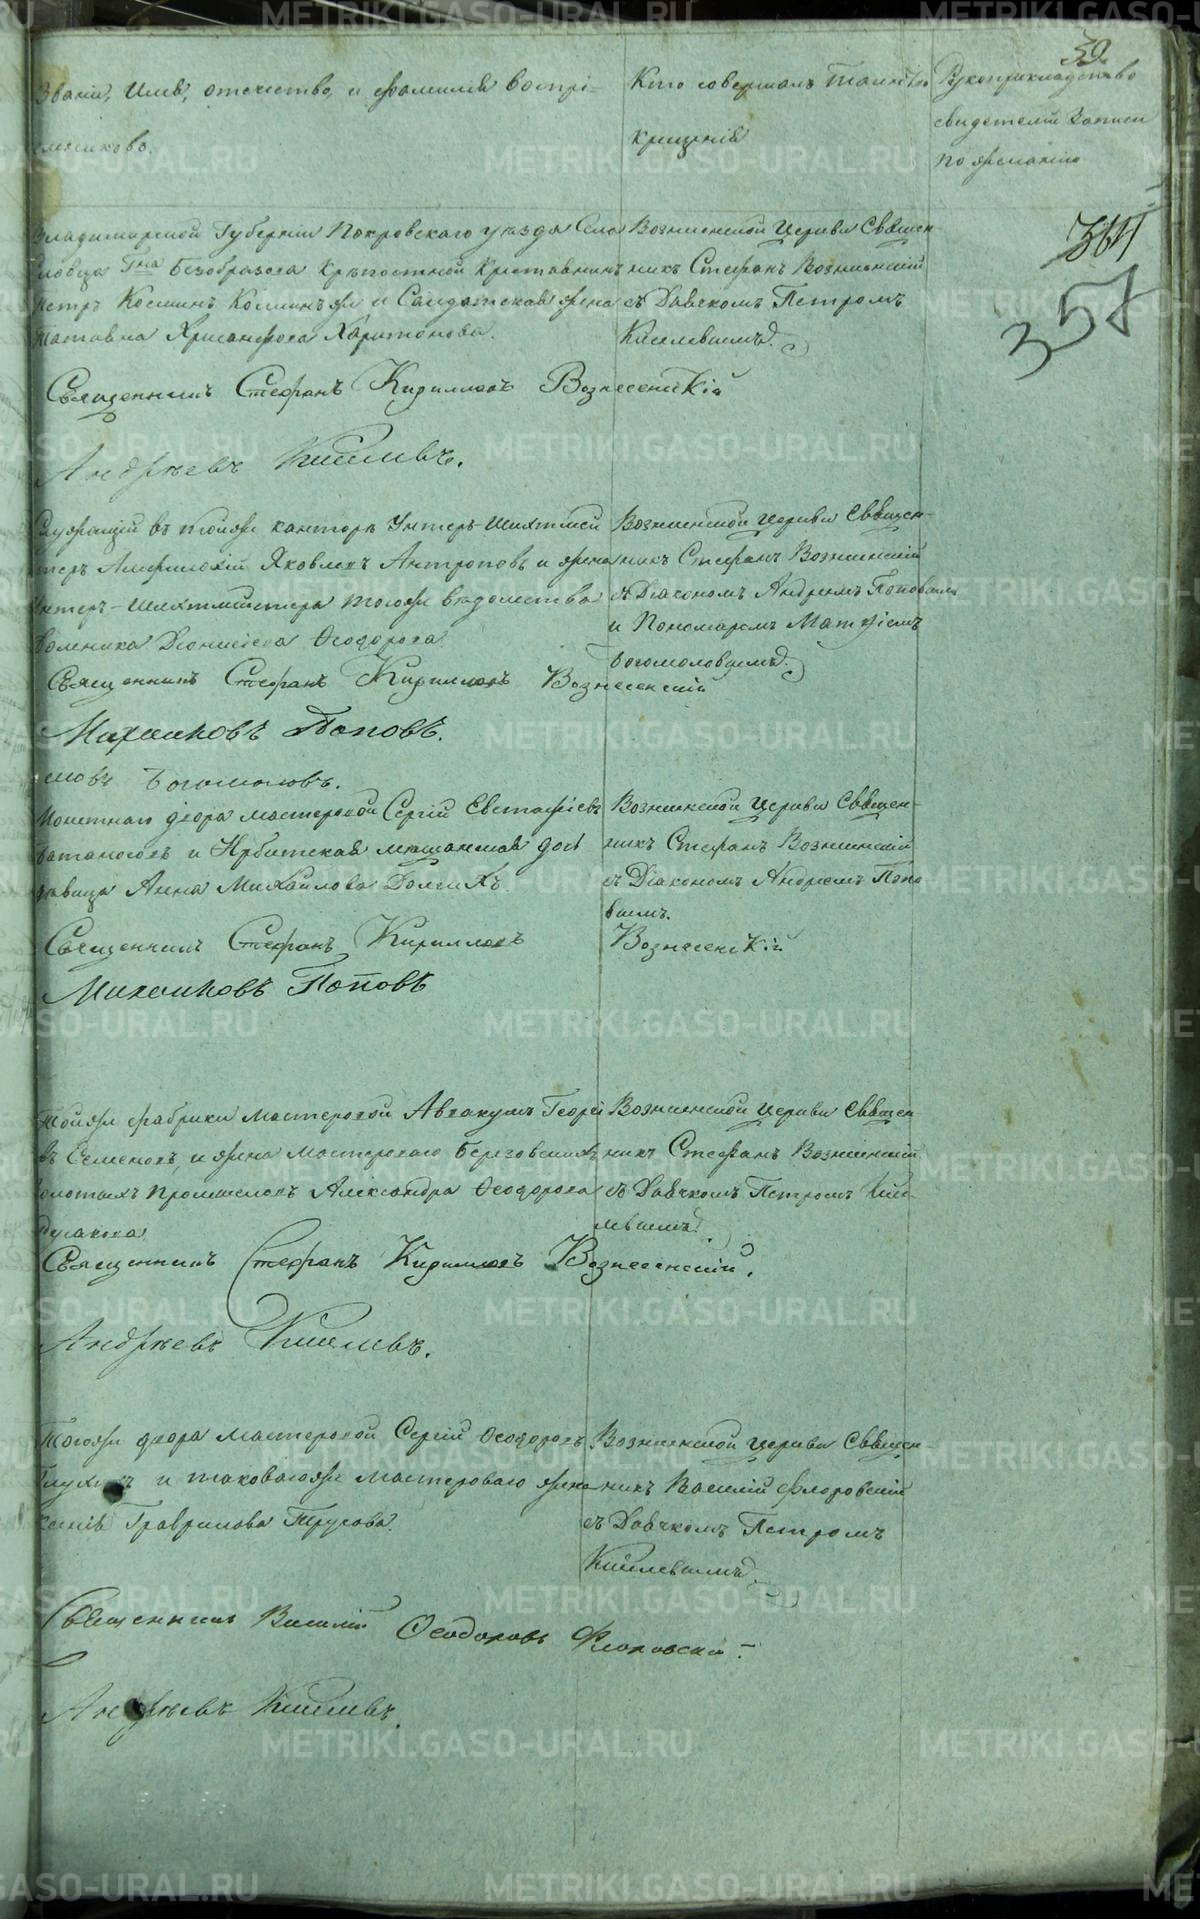 59
Званіе, Имя, отечество, и фамилія воспрі-
емниковъ.
Кто совершалъ таинство
крещенія
Рукоприкладство
свидетелей записи
по желанію
364
357
Владимирской Губерніи Покровскаго уезда Села
Гна Безобразова Крѣпостной Крестьянинъ
Петръ Козминъ и Салдатская жена
Татьяна Хрисанфова Харитонова.
Вознесенской Церкви Священ-
никъ Стефанъ Вознесенскій
съ Дьячкомъ Петромъ
Киселевымъ.
Священникъ Стефанъ Кирилловъ Вознесенскій
Андрѣевъ Киселевъ.
Служащій въ тойже канторѣ Унтеръ-Шихтмей
стеръ Яковлевъ Антроповъ и жена
Унтеръ-Шихтмейстера тогоже вѣдомства
Діонисіева Ѳеодорова.
Вознесенской Церкви Священ-
никъ Стефанъ Вознесенскій
съ Діакономъ Андреемъ Поповымъ
и Пономаремъ Матѳіемъ
Богомоловымъ.
Священникъ Стефанъ Кирилловъ Вознесенскій
Михайловъ Поповъ.
Богомоловъ.
Монетнаго двора мастеровой Сергій Евстафіевъ
и Ирбитская мещанская
Анна Михайлова Долгихъ.
Вознесенской Церкви Священ-
никъ Стефанъ Вознесенскій
съ Діакономъ Андреемъ Попо-
вымъ.
Священникъ Стефанъ Кирилловъ Вознесенскій
Михайловъ Поповъ
Тойже фабрики мастеровой Аввакумъ Георгі
евъ Семеновъ, и жена мастероваго Березовскихъ
золотыхъ промысловъ Александра Ѳеодорова
Вознесенской Церкви Священ
никъ Стефанъ Вознесенскій
съ Дьячкомъ Петромъ Кисе-
левымъ.
Священникъ Стефанъ Кирилловъ Вознесенскій.
Андрѣевъ Киселевъ.
Тогоже двора мастеровой Сергій Ѳеодоровъ
и таковагоже мастероваго жена
Ксенія Гаврилова Трусова.
Вознесенской Церкви Священ-
никъ Василій Флоровскій
съ Дьячкомъ Петромъ
Киселевымъ.
Священникъ Василій Ѳеодоровъ Флоровскій
Андрѣевъ Киселевъ.
METRIKI.GASO-URAL.RU